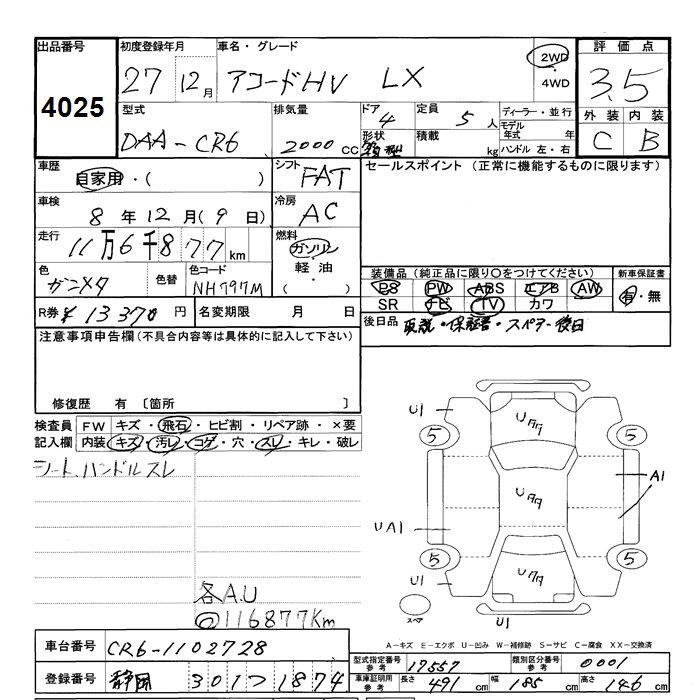 出品番号 初度登録年月 車名・グレード 評価点
4025 27 12月 アコードHV LX 2WD・4WD 3.5
型式 排気量 ドア 4 定員 5人 ディーラー・並行 外装 内装
DAA-CR6 2000cc 形状 積載 kg モデル年式 年 ハンドル 左・右 C B
車歴 自家用・( ) シフト FAT セールスポイント (正常に機能するものに限ります)
車検 8年12月(9日) 冷房 AC
走行 11万6千877km 燃料 ガソリン・軽油・( )
色 ガンメタ 色替 色コード NH797M 装備品 (純正品に限り○をつけてください) 新車保証書
PS PW ABS エアB AW 有・無
SR ナビ TV カワ
R券 ¥13370円 名変期限 月 日 後日品 取説・保証書・スペアキー後日
注意事項申告欄(不具合内容等は具体的に記入して下さい)
修復歴 有〔箇所 〕
検査員記入欄 FW キズ・飛石・ヒビ割・リペア跡・×要
内装 キズ・汚レ・コゲ・穴・スレ・キレ・破レ
シート、ハンドルスレ
U1
5 5
A1
UA1
5 5
U1
スペア U1
各A.U
116877Km
A-キズ E-エクボ U-凹み W-補修跡 S-サビ C-腐食 XX-交換済
車台番号 CR6-1102728
型式指定番号 参考 17557 類別区分番号 参考 0001
登録番号 静岡 301 1874
車庫証明用 参考 長さ 491cm 幅 185cm 高さ 146cm